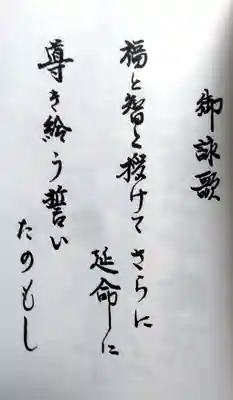 御詠歌
福と智を授けてさらに
延命に
導き給う誓い
たのもし